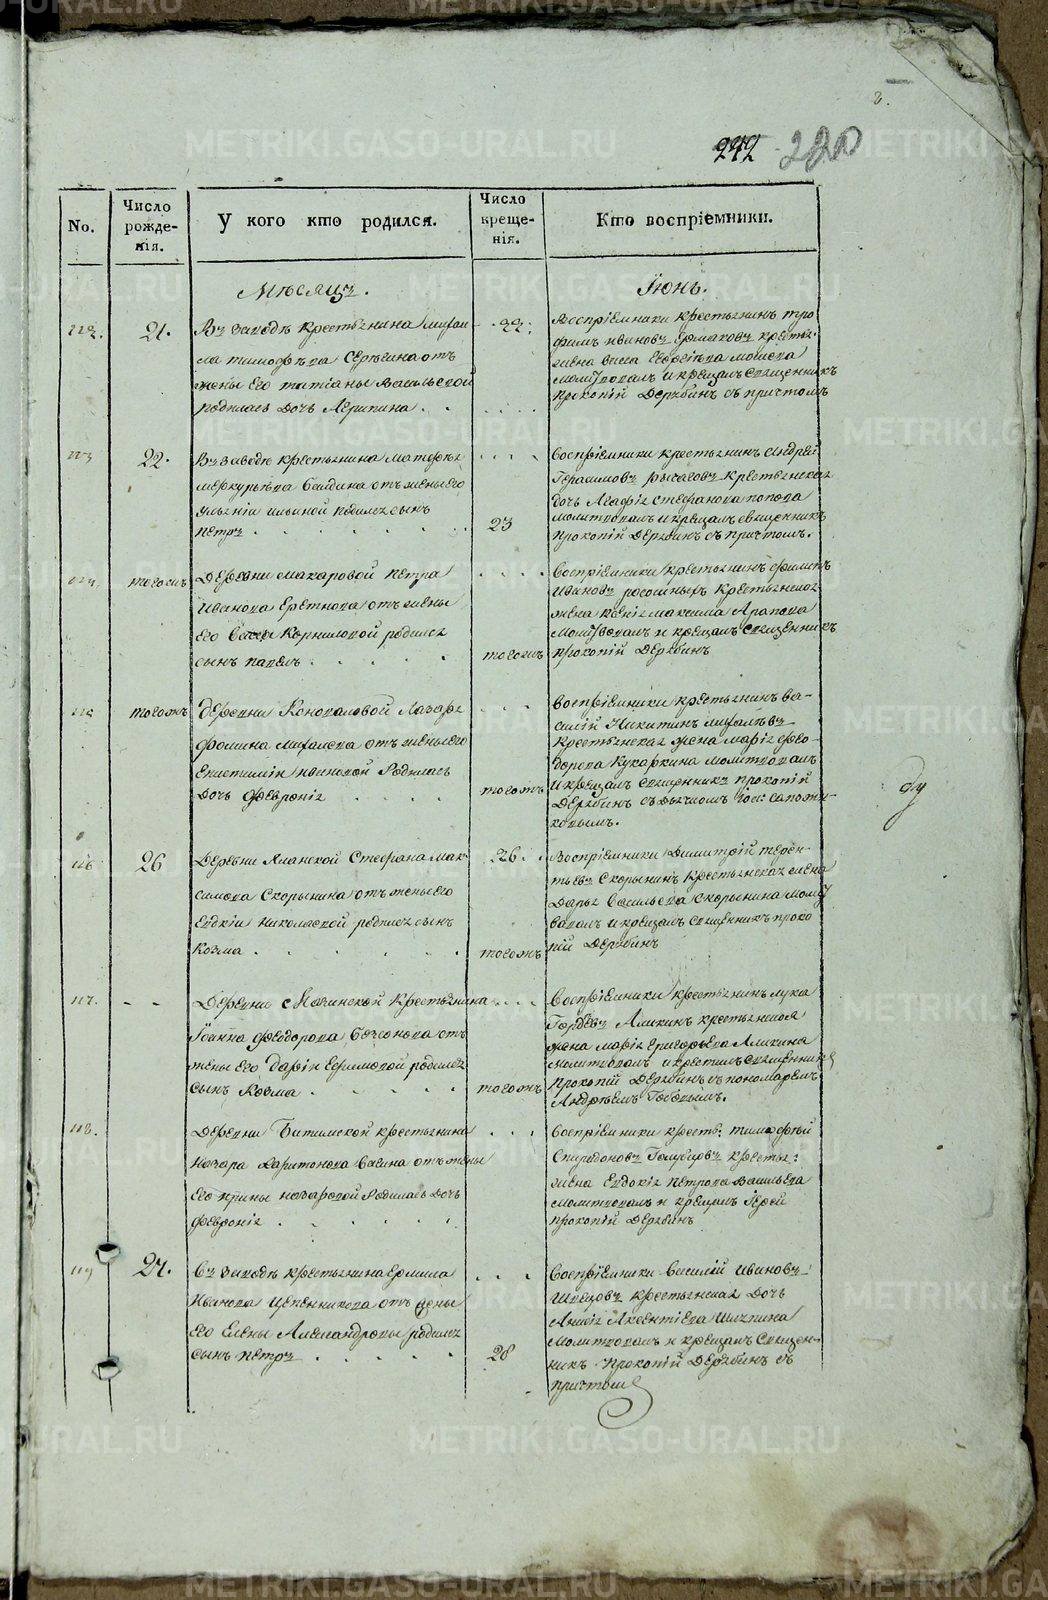 8.
242 220
No.
Число рожде-нія.
У кого кто родился.
Число креще-нія.
Кто воспріемники.
Мѣсяцъ.
Іюнь.
112.
21.
Въ заводѣ крестьянина Михаи-
ла Тимофѣева Сергѣина отъ
жены его Татіаны Васильевой
родилась дочь Агрипина . .
22.
Воспріемники крестьянинъ Тро-
фимъ Ивановъ Ермаковъ крестья:
жена
молитвовалъ и крещалъ священникъ
Прокопій Дерябинъ съ причтомъ
113
22.
Въ заводѣ крестьянина Матофѣя
Меркурьева Балдина отъ жены его
Ильиной родился сынъ
Петръ
23
воспріемники крестьянинъ Андрей
Герасимовъ крестьянская
дочь Агафія Стефанова Попова
молитвовалъ и крещалъ священникъ
Прокопій Дерябинъ съ причтомъ.
114
тогожъ
Деревни Макаровой Петра
Иванова Еретнова отъ жены
его Корниловой родился
сынъ Павелъ
тогожъ
воспріемники крестьянинъ Филипъ
Ивановъ крестьянская
жена Максима Арапова
молитвовалъ и крещалъ священникъ
Прокопій Дерябинъ
115
тогожъ
деревни Коноваловой Лазаря
Фомина Михалева отъ жены его
Епистиміи Ивановой родилась
дочь Февронія
тогожъ
воспріемники крестьянинъ Ва-
силій Никитинъ Михалевъ
крестьянская жена Марія Фео-
дорова Кукаркина молитвовалъ
и крещалъ священникъ Прокопій
Дерябинъ съ дьячкомъ Іос: Сапожни-
ковымъ.
116
26
Деревни Яланской Стефана Мак-
симова Скорынина отъ жены его
Евдокіи Николаевой родился сынъ
Козма
26.
тогожъ
Воспріемники Димитрій Терен-
тьевъ Скорынинъ крестьянская жена
Дарья Васильева Скорынина молит
вовалъ и крещалъ священникъ Проко
пій Дерябинъ
117.
- -
Деревни крестьянина
Іоанна Феодорова Безсонова отъ
жены его Даріи Ефимовой родился
сынъ Козма
тогожъ
Воспріемники крестьянинъ Лука
Гордѣевъ Аликинъ крестьянская
жена Марія Григорьева Аликина
молитвовалъ и крестилъ священникъ
Прокопій Дерябинъ съ пономаремъ
Андрѣемъ
118.
Деревни Битимской крестьянина
Назара Харитонова отъ жены
его Ирины Назаровой родилась дочь
Февронія
воспріемники крест: Тимофей
Спиридоновъ Голубцовъ крестья:
жена Евдокія Петрова Васильева
молитвовалъ и крещалъ Іерей
Прокопій Дерябинъ
119
27.
Въ заводѣ крестьянина Ермила
Иванова Щепенникова отъ жены
его Елены Александровы родился
сынъ Петръ
28
Воспріемники Василій Ивановъ
Швецовъ крестьянская дочь
Анисія Аксентіева Шляпина
молитвовалъ и крещалъ священ-
никъ Прокопій Дерябинъ съ
причтомъ
METRIKI.GASO-URAL.RU